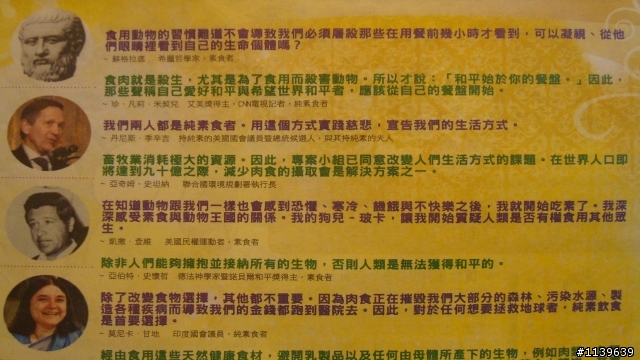 食用動物的習慣難道不會導致我們必須屠殺那些在用餐前幾小時才看到，可以凝視、從他
們眼睛裡看到自己的生命個體嗎？
~ 蘇格拉底 希臘哲學家，素食者
食肉就是殺生，尤其是為了食用而殺害動物。所以才說：「和平始於你的餐盤。」因此，
那些聲稱自己愛好和平與希望世界和平者，應該從自己的餐盤開始。
~ 珍．凡莉．米契兒 艾美獎得主，CNN電視記者，純素食者
我們兩人都是純素食者。用這個方式實踐慈悲，宣告我們的生活方式。
~ 丹尼斯．季辛吉 持純素的美國國會議員暨總統候選人，與其持純素的夫人
畜牧業消耗極大的資源。因此，專案小組已同意改變人們生活方式的課題。在世界人口即
將達到九十億之際，減少肉食的攝取會是解決方案之一。
~ 亞奇姆．史坦納 聯合國環境規劃署執行長
在知道動物跟我們一樣也會感到恐懼、寒冷、饑餓與不快樂之後，我就開始吃素了。我深
深感受素食與動物王國的關係。我的狗兒－玻卡，讓我開始質疑人類是否有權食用其他眾
生。
~ 凱撒．查維 美國民權運動者，素食者
除非人們能夠擁抱並接納所有的生物，否則人類是無法獲得和平的。
~ 亞伯特．史懷哲 德法神學家暨諾貝爾和平獎得主，素食者
除了改變食物選擇，其他都不重要。因為肉食正在摧毀我們大部分的森林、污染水源、製
造各種疾病而導致我們的金錢都跑到醫院去。因此，對於任何想要拯救地球者，純素飲食
是首要選擇。
~ 莫尼卡．甘地 印度國會議員，純素食者
經由食用這些天然健康食材，避開乳製品以及任何由母體所產下的生物，例如肉類
#1139639